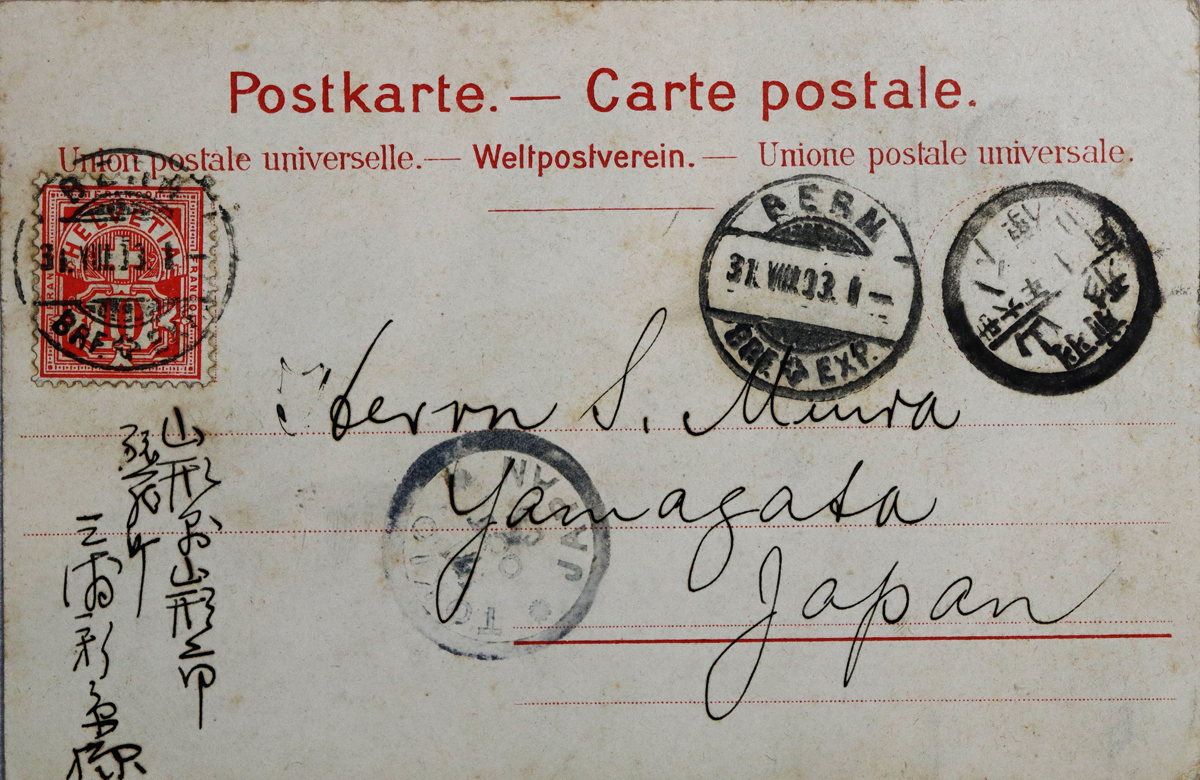 Postkarte. — Carte postale.
Union postale universelle. — Weltpostverein. — Unione postale universale.
HELVETIA
FRANCO
10
BERN
31.VIII.03. 1 —
BRF. EXP.
BERN
31.VIII.03. 1 —
BRF. EXP.
Herrn S. Miura
Yamagata
Japan
TOKIO
JAPAN
山形県山形市
町
三浦 様